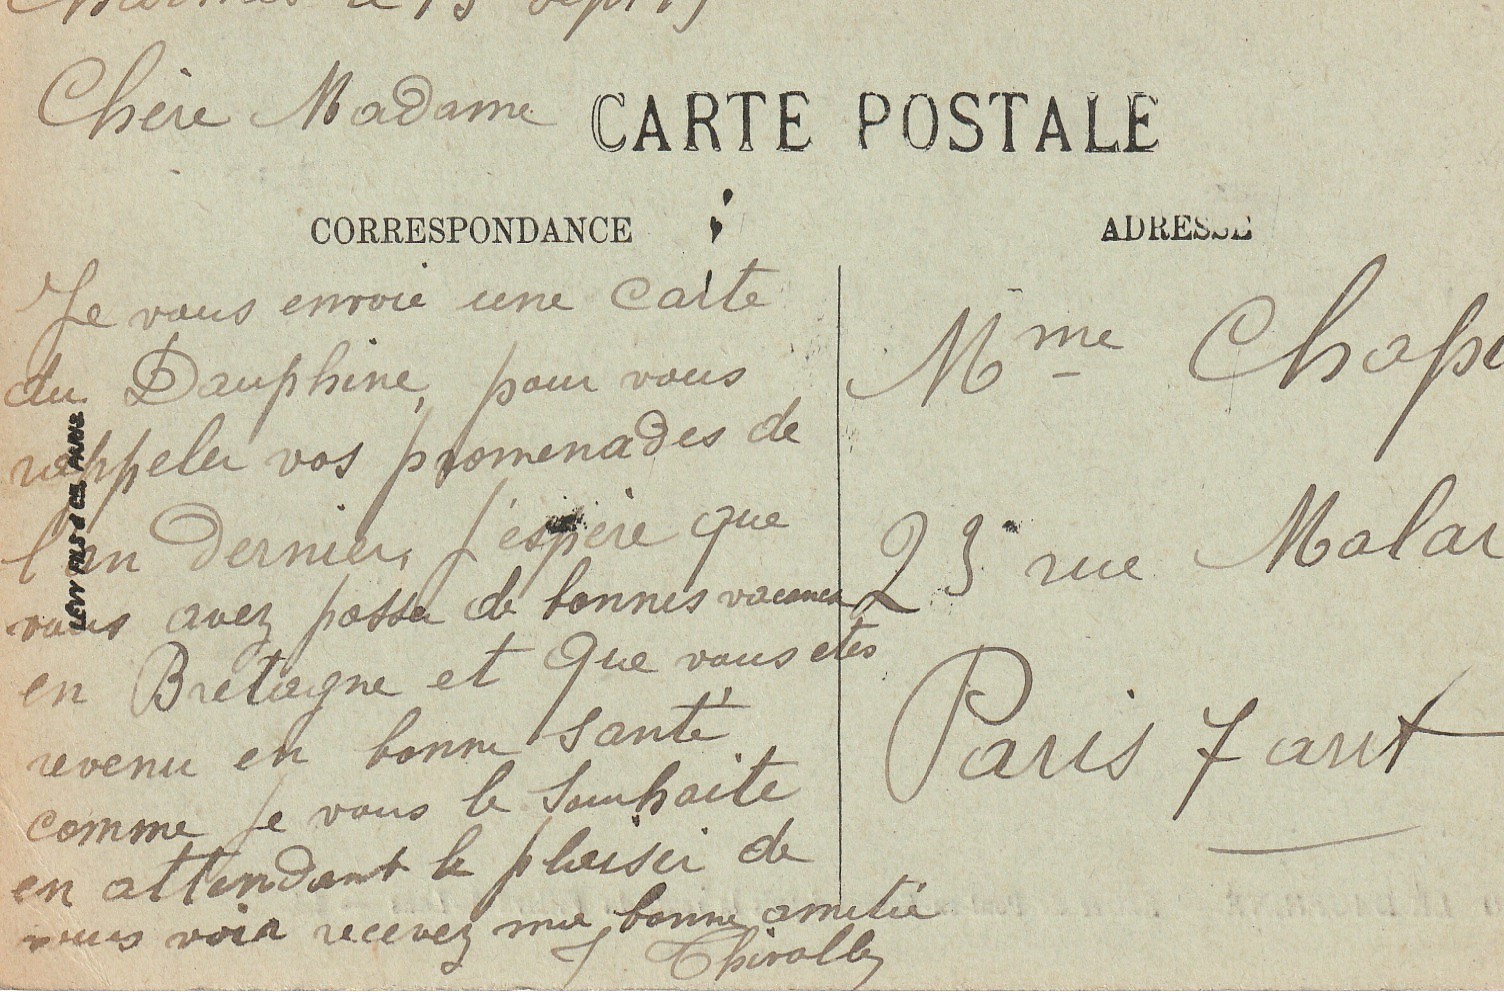 le 13 Sept 19
Chère Madame
CARTE POSTALE
CORRESPONDANCE
ADRESSE
Je vous envoie une carte
du Dauphiné, pour vous
rappeler vos promenades de
l'an dernier, j'espère que
vous avez passer de bonnes vacances
en Bretagne et que vous etes
revenu en bonne santé
comme je vous le souhaite
en attendant le plaisir de
vous voir recevez me bonne amitié
J Thivolle
LEVY FILS & Cie PARIS
Mme Chape
23 rue Malar
Paris 7 arrt